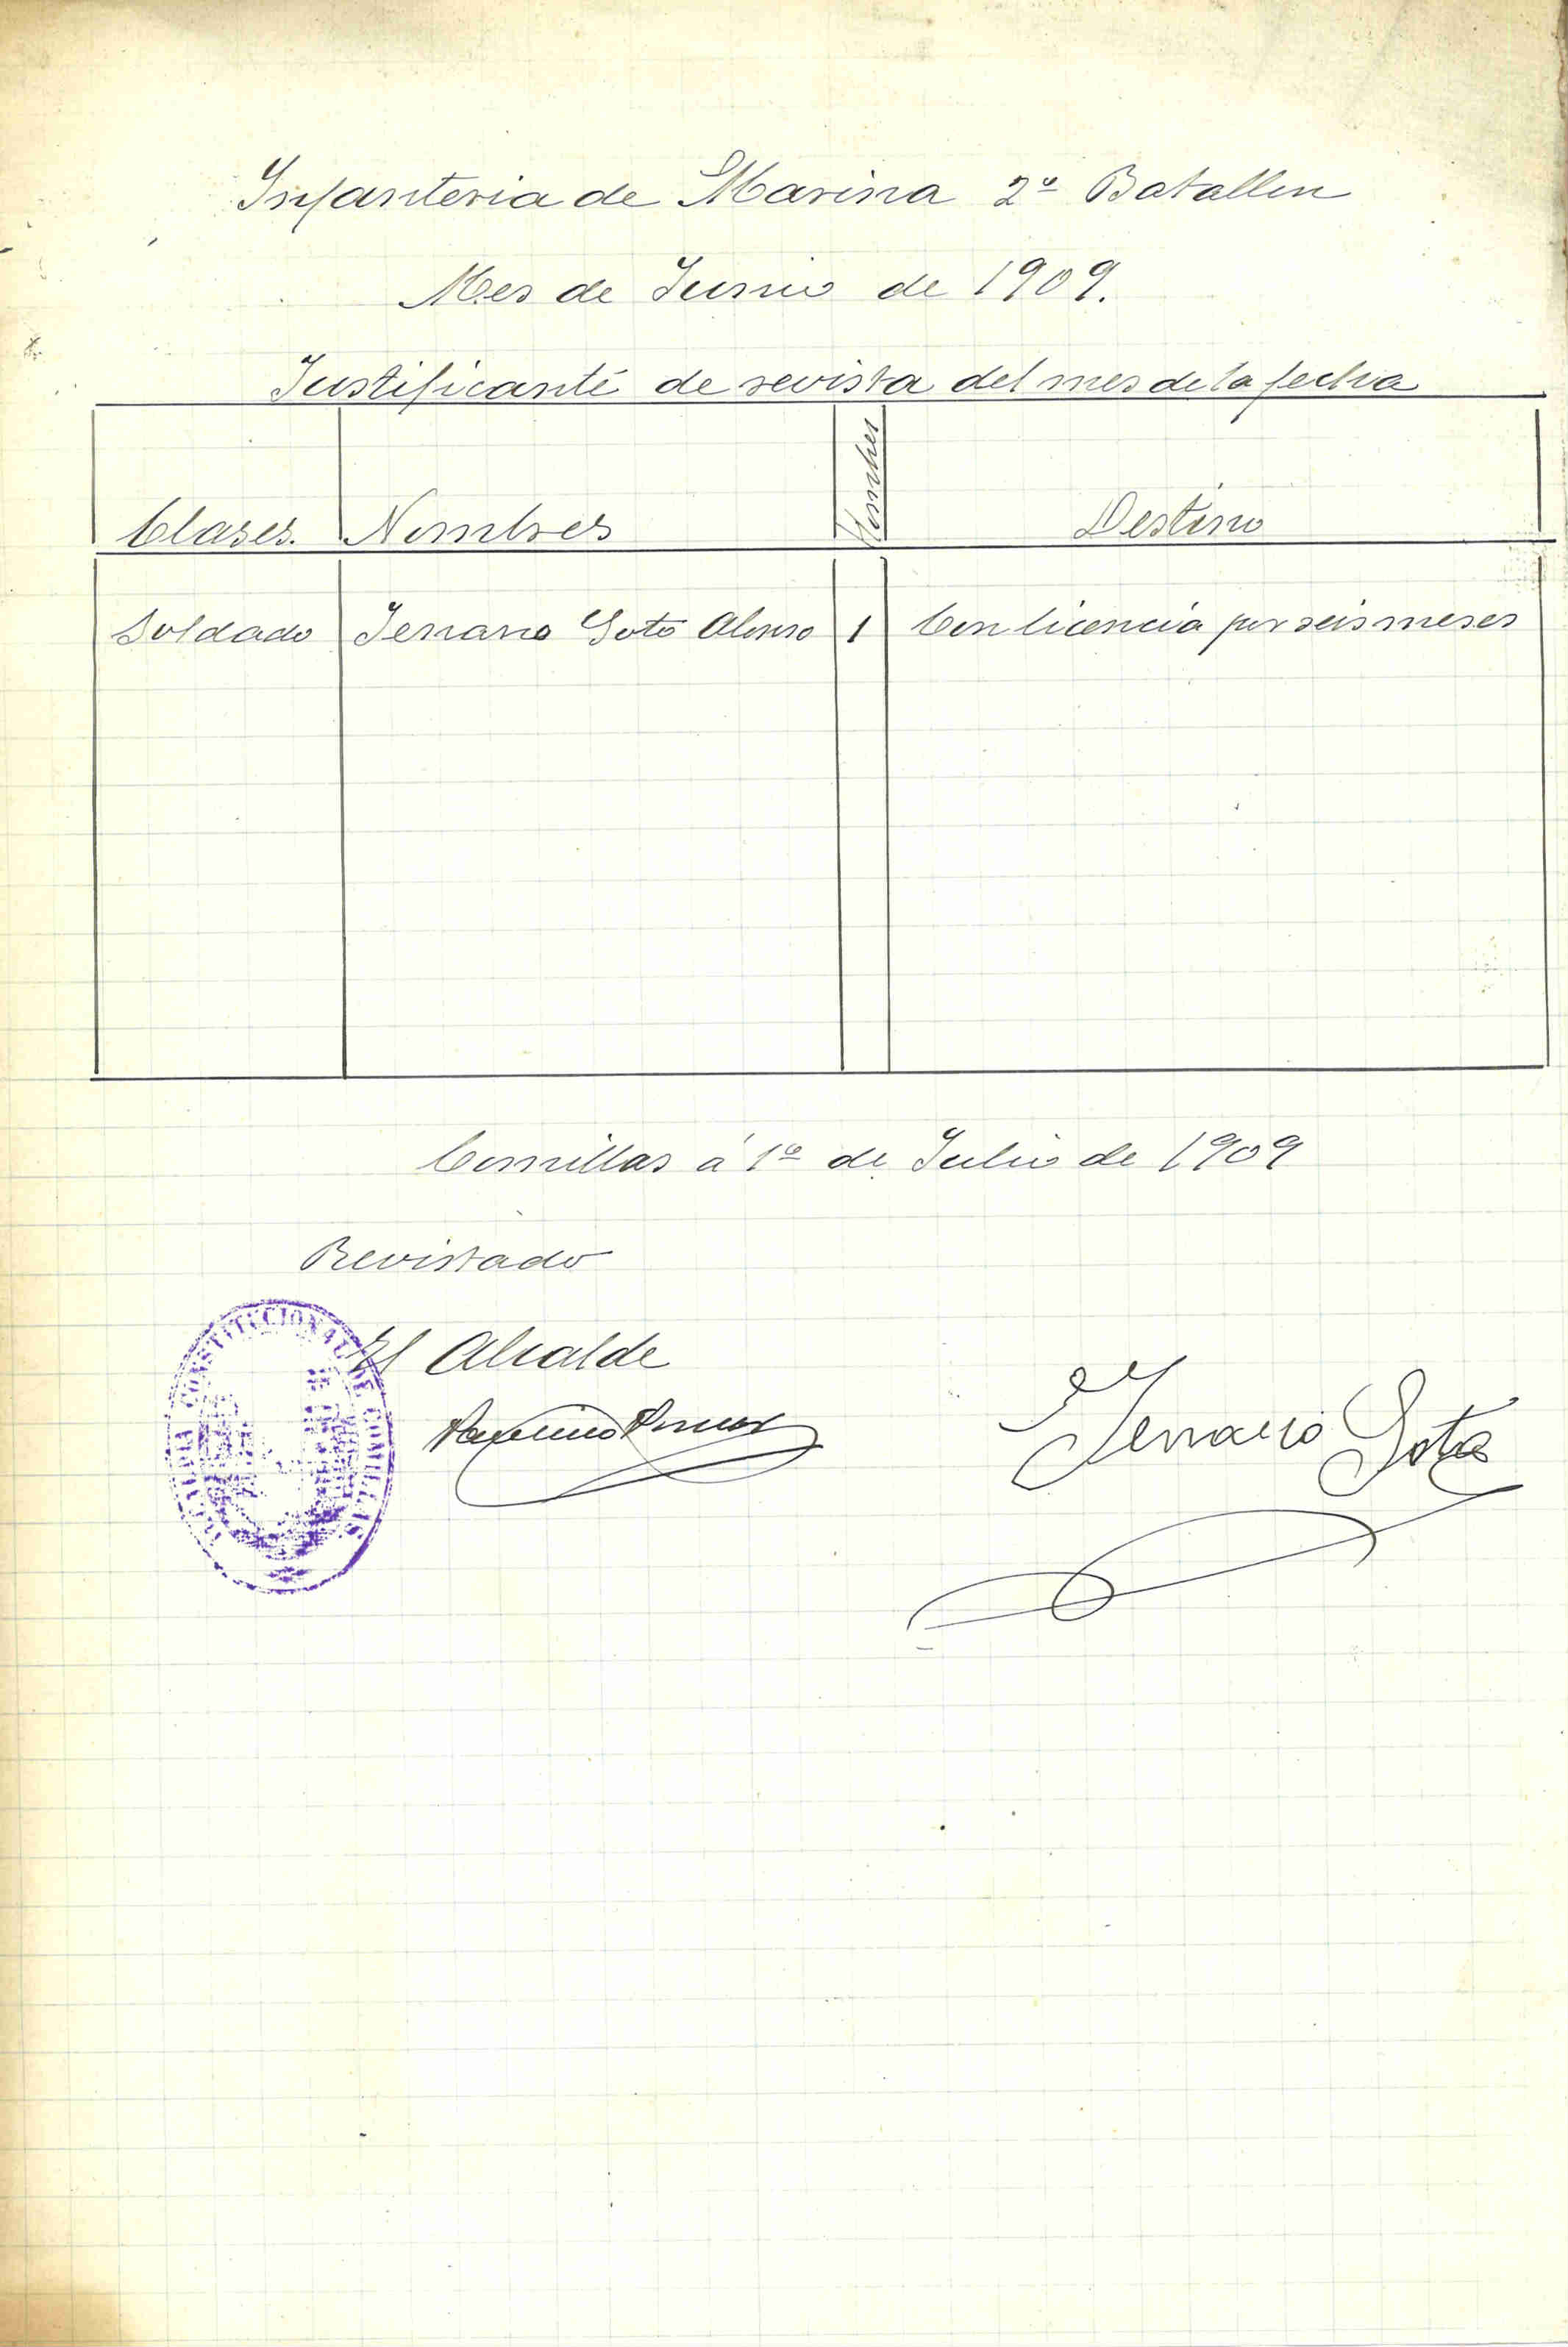 Infanteria de Marina 2º Batallon
Mes de Junio de 1909.
Justificante de revista del mes de la fecha
Clases. Nombres Hombres Destino
Soldado Jenaro Soto Alonso 1 Con licencia por seis meses
Comillas á 1º de Julio de 1909
Revistado
El Alcalde
Jenaro Soto
ALCALDIA CONSTITUCIONAL DE COMILLAS